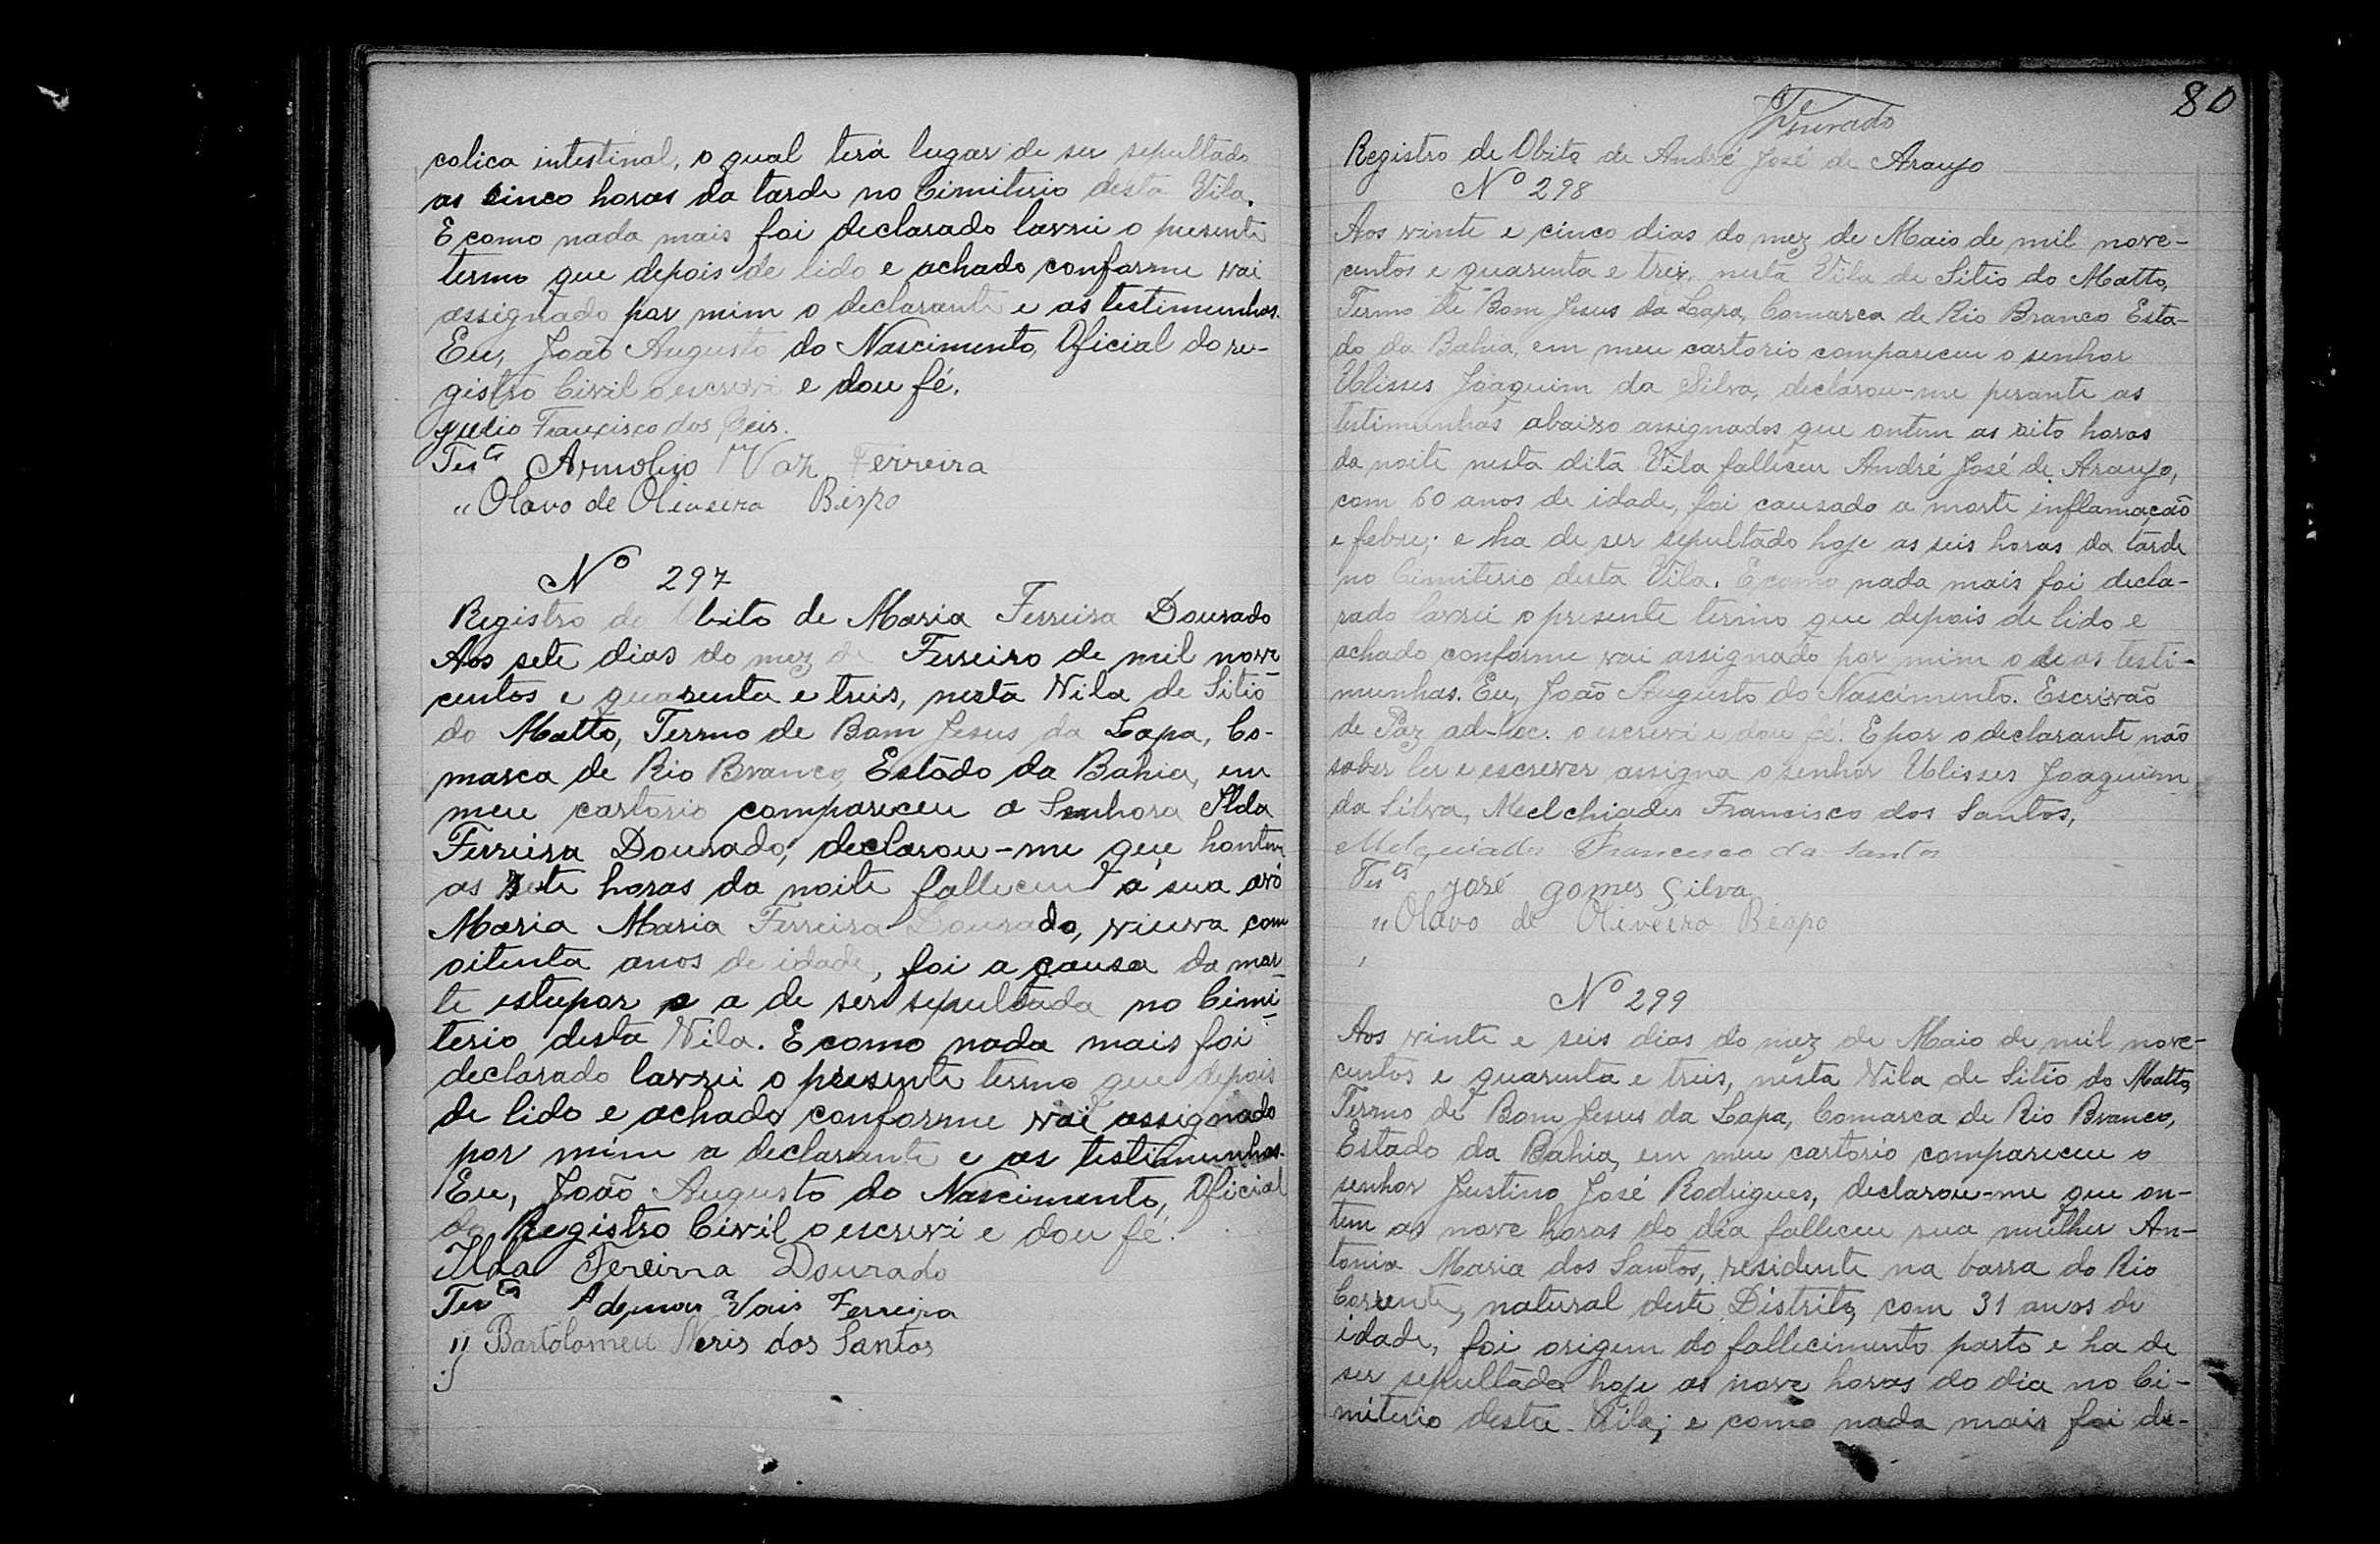 colica intestinal, o qual terá lugar de ser sepultado
as cinco horas da tarde no Cimiterio desta Vila.
E como nada mais foi declarado lavrei o presente
termo que depois de lido e achado conforme vai
assignado por mim o declarante e as testimunhas.
Eu, João Augusto do Nascimento, Oficial do re-
gistro Civil o escrevi e dou fé.
Julio Francisco dos Reis.
Tes^tas Arnolijo Vaz Ferreira
" Olavo de Oliveira Bispo
Nº 297
Registro de Obito de Maria Ferreira Dourado
Aos sete dias do mez de Ferreiro de mil nove
centos e quarenta e treis, nesta Vila de Sitio
do Matto, Termo de Bom Jesus da Lapa, Co-
marca de Rio Branco, Estado da Bahia, em
meu cartorio compareceu a Senhora Ilda
Ferreira Dourado, declarou-me que hontem
as sete horas da noite falleceu a sua avó
Maria Maria Ferreira Dourado, viuva com
oitenta anos de idade, foi a causa da mor-
te estupor e a de ser sepultada no Cimi-
terio desta Vila. E como nada mais foi
declarado lavrei o presente termo que depois
de lido e achado conforme vai assignado
por mim a declarante e as testimunhas.
Eu, João Augusto do Nascimento, Oficial
do Registro Civil o escrevi e dou fé.
Ilda Fereirra Dourado
Tes^tas Ademar Vais Ferreira
" Bartolomeu Neris dos Santos
80
Registro de Obito de André José de Araujo
Nº 298
Aos vinte e cinco dias do mez de Maio de mil nove-
centos e quarenta e treiz, nesta Vila de Sitio do Matto,
Termo de Bom Jesus da Lapa, Comarca de Rio Branco Esta-
do da Bahia, em meu cartorio compareceu o senhor
Ulisses Joaquim da Silva, declarou-me perante as
testimunhas abaixo assignados que ontem as oito horas
da noite nesta dita Vila falleceu André José de Araujo,
com 60 anos de idade, foi causado a morte inflamação
e febre; e ha de ser sepultado hoje as seis horas da tarde
no Cimiterio desta Vila. E como nada mais foi decla-
rado lavrei o presente termo que depois de lido e
achado conforme vai assignado por mim o de as testi-
munhas. Eu, João Augusto do Nascimento. Escrivão
de Paz ad-hoc. o escrevi e dou fé. E por o declarante não
saber ler e escrever assigna o senhor Ulisses Joaquim
da Silva, Melchiades Francisco dos Santos,
Melquiades Francisco da Santos
Tes^tas José gomes Silva
" Olavo de Oliveira Bispo
Nº 299
Aos vinte e seis dias do mez de Maio de mil nove-
centos e quarenta e treis, nesta Vila de Sitio do Matto,
Termo de Bom Jesus da Lapa, Comarca de Rio Branco,
Estado da Bahia, em meu cartorio compareceu o
senhor Justino José Rodrigues, declarou-me que on-
tem as nove horas do dia falleceu sua mulher An-
tonia Maria dos Santos, residente na barra do Rio
Corrente, natural deste Distrito, com 31 anos de
idade, foi origem do fallecimento parto e ha de
ser sepultada hoje as nove horas do dia no Ci-
miterio desta Vila; e como nada mais foi de-